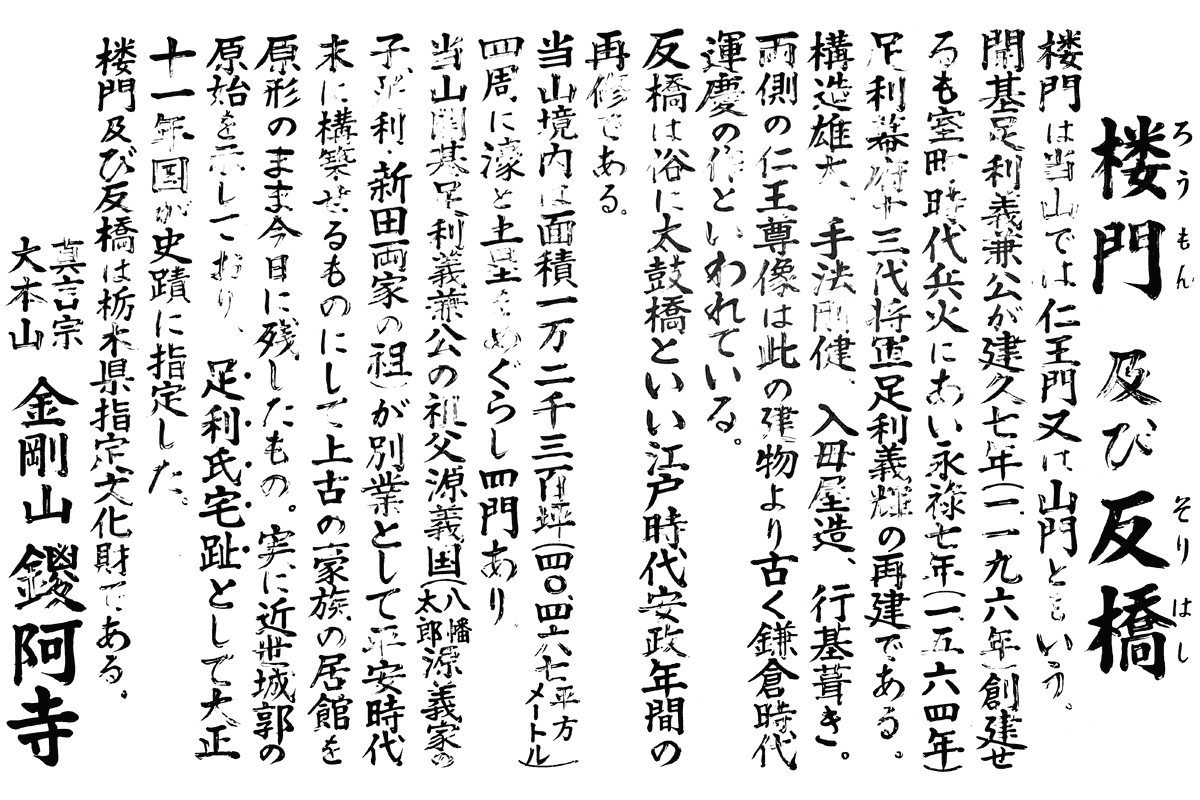 楼門及び反橋
ろうもん
そりはし
楼門は当山では仁王門又は山門ともいう。
開基足利義兼公が建久七年(一一九六年)創建せ
るも室町時代兵火にあい永禄七年(一五六四年)
足利幕府十三代将軍足利義輝の再建である。
構造雄大、手法剛健、入母屋造、行基葺き。
両側の仁王尊像は此の建物より古く鎌倉時代
運慶の作といわれている。
反橋は俗に太鼓橋といい江戸時代安政年間の
再修である。
当山境内は面積一万二千三百坪(四〇、四六七平方メートル)
四周に濠と土塁をめぐらし四門あり
当山開基足利義兼公の祖父源義国(八幡太郎源義家の
子、足利・新田両家の祖)が別業として平安時代
末に構築せるものにして上古の豪族の居館を
原形のまま今日に残したもの。実に近世城郭の
原始を示しており、足利氏宅趾として大正
十一年国が史蹟に指定した。
楼門及び反橋は栃木県指定文化財である。
真言宗
大本山
金剛山鑁阿寺